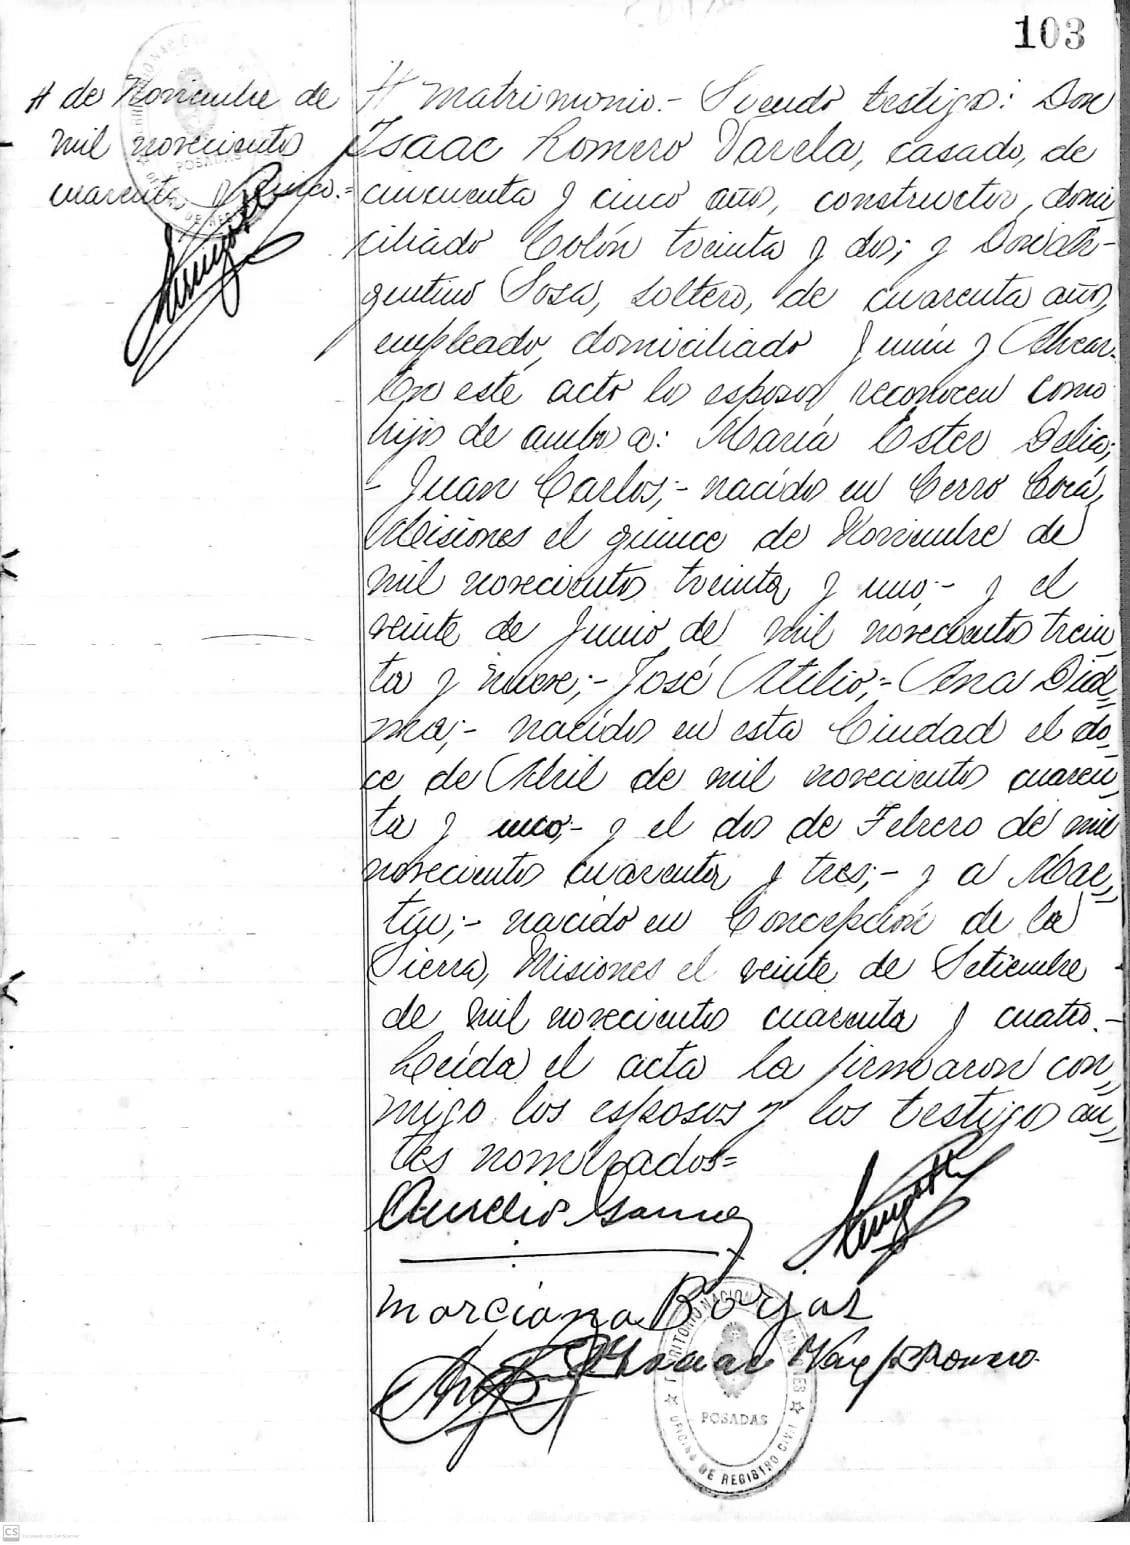 103
# de Noviembre de
mil novecientos
cuarenta y cinco.=
# matrimonio.- Siendo testigos: Don
Isaac Romero Varela, casado, de
cincuenta y cinco años, constructor, domi
ciliado Colón treinta y dos; y Don Ar-
gentino Sosa, soltero, de cuarenta años,
empleado, domiciliado Junín y Alvear.
En este acto los esposos reconocen como
hijos de ambos a: María Ester Delia;
- Juan Carlos;- nacidos en Cerro Corá,
Misiones el quince de Noviembre de
mil novecientos treinta y uno;- y el
veinte de Junio de mil novecientos trein
ta y nueve;- José Atilio;- Ana Diel
ma;- nacidos en esta Ciudad el do,
ce de Abril de mil novecientos cuaren
ta y uno;- y el dos de Febrero de mil
novecientos cuarenta y tres;- y a Mae,
nacido en Concepción de la
Sierra, Misiones el veinte de Setiembre
de mil novecientos cuarenta y cuatro.-
Leída el acta la firmaron con,
migo los esposos y los testigos an,
tes nombrados=
Aurelio
Marciana Borjas
Isaac Romero
TERRITORIO NACIONAL DE MISIONES
POSADAS
OFICINA DE REGISTRO CIVIL
CS